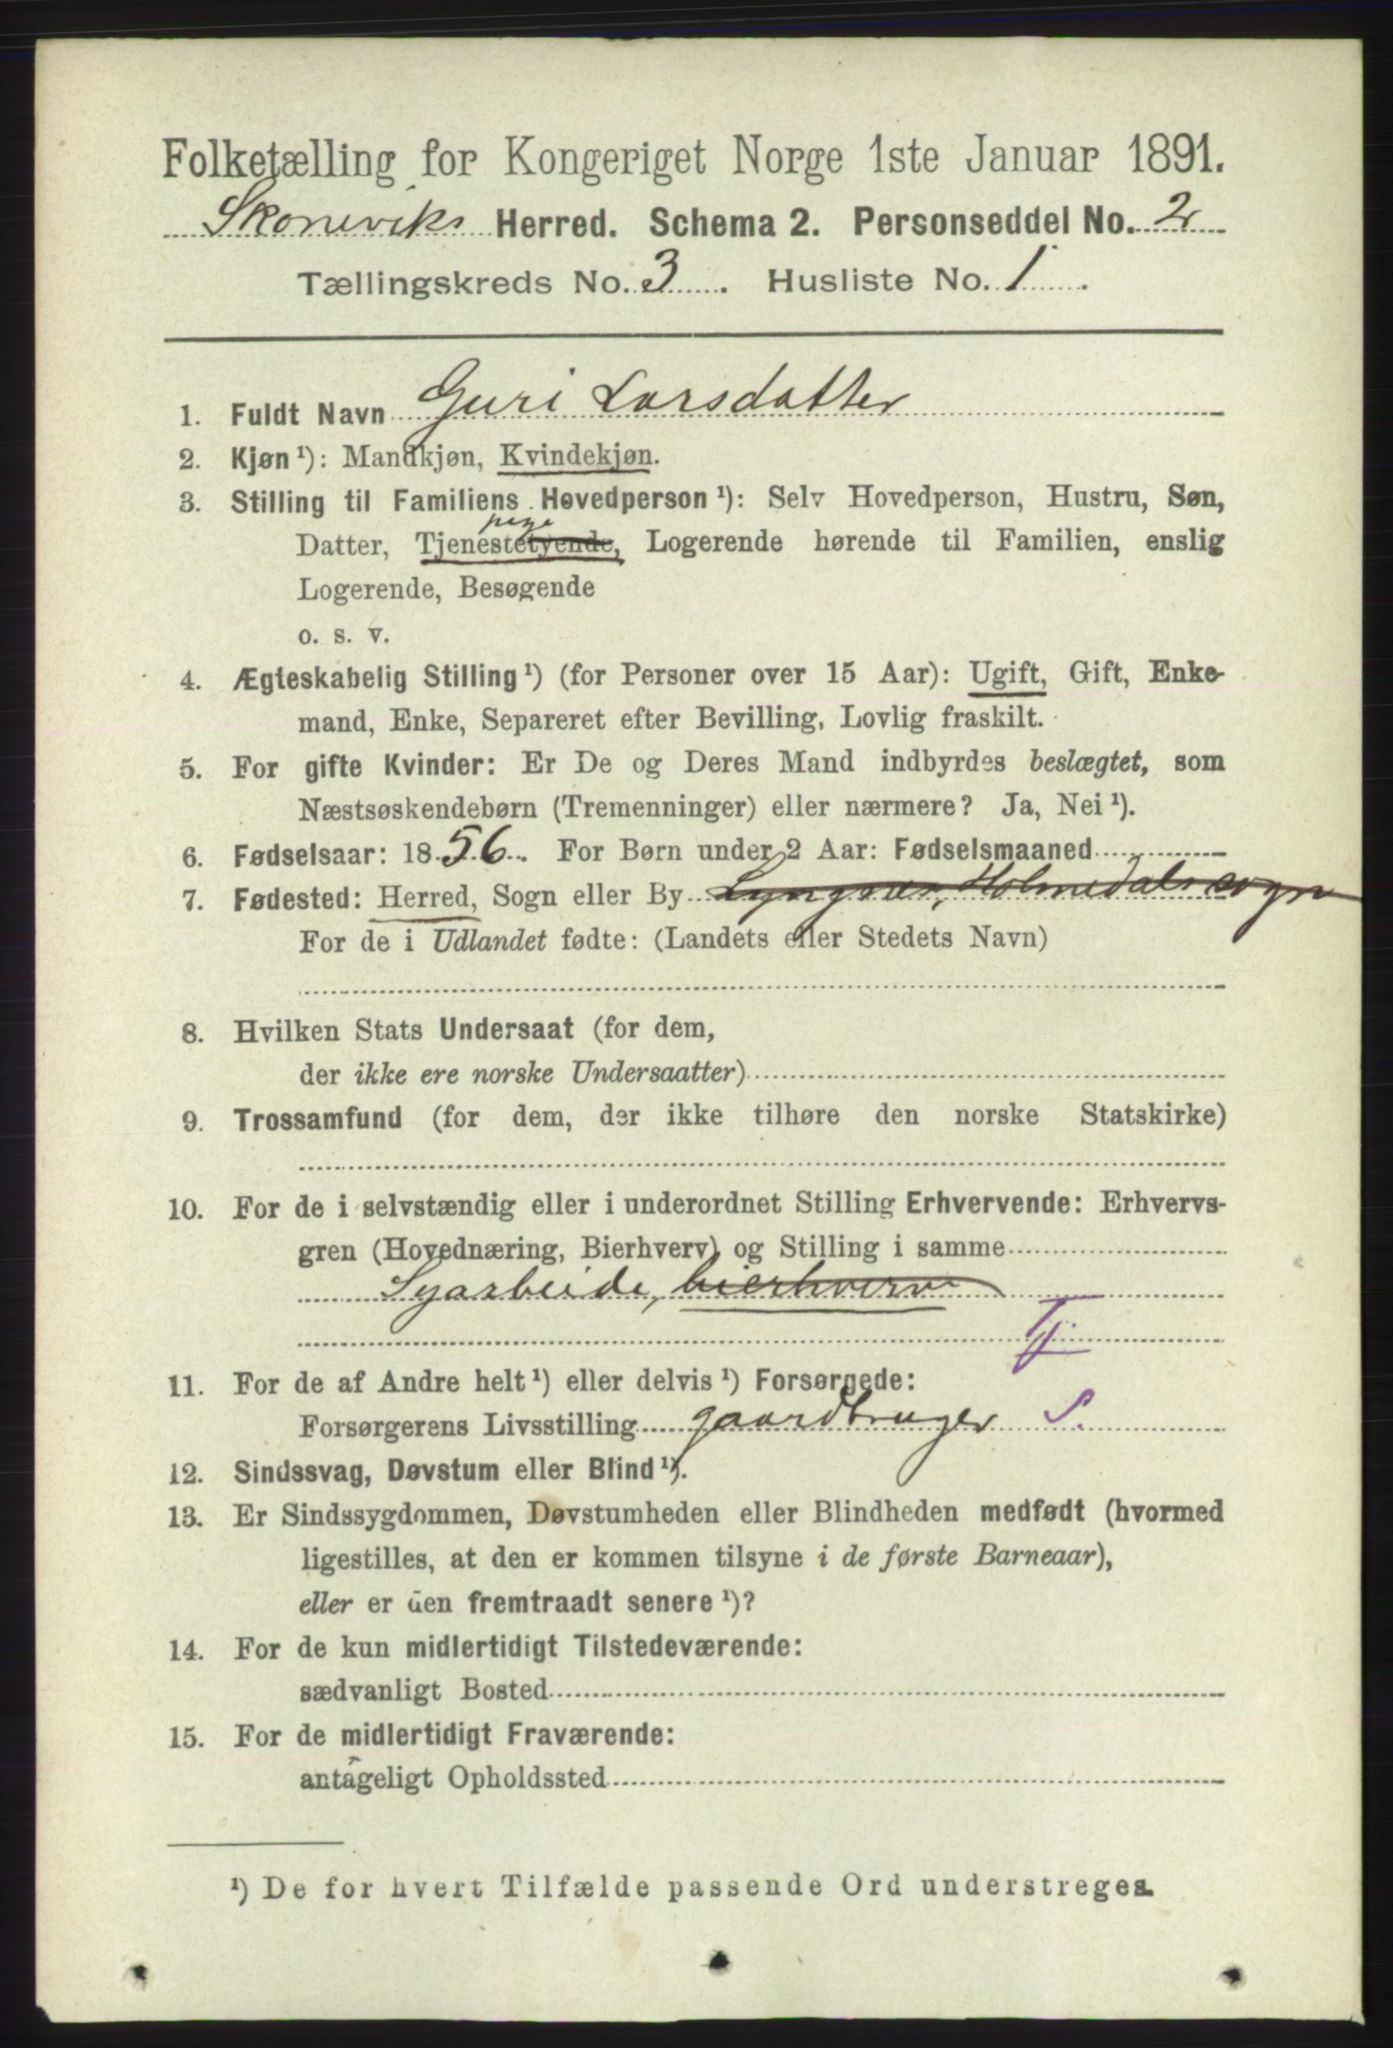 Folketælling for Kongeriget Norge 1ste Januar 1891.
Skoneviks Herred. Schema 2. Personseddel No. 2
Tællingskreds No. 3. Husliste No. 1.
1. Fuldt Navn Guri Larsdatter
2. Kjøn ¹): Mandkjøn, Kvindekjøn.
3. Stilling til Familiens Hovedperson ¹): Selv Hovedperson, Hustru, Søn,
pige
Datter, Tjenestetyende, Logerende hørende til Familien, enslig
Logerende, Besøgende
o. s. v.
4. Ægteskabelig Stilling ¹) (for Personer over 15 Aar): Ugift, Gift, Enke-
mand, Enke, Separeret efter Bevilling, Lovlig fraskilt.
5. For gifte Kvinder: Er De og Deres Mand indbyrdes beslægtet, som
Næstsøskendebørn (Tremenninger) eller nærmere? Ja, Nei ¹).
6. Fødselsaar: 1856. For Børn under 2 Aar: Fødselsmaaned
7. Fødested: Herred, Sogn eller By Lyngnes, Holmedals sogn
For de i Udlandet fødte: (Landets eller Stedets Navn)
8. Hvilken Stats Undersaat (for dem,
der ikke ere norske Undersaatter)
9. Trossamfund (for dem, der ikke tilhøre den norske Statskirke)
10. For de i selvstændig eller i underordnet Stilling Erhvervende: Erhvervs-
gren (Hovednæring, Bierhverv) og Stilling i samme
Syarbeide, bierhverv
Tj.
11. For de af Andre helt ¹) eller delvis ¹) Forsørgede:
Forsørgerens Livsstilling gaardbruger S.
12. Sindssvag, Døvstum eller Blind ¹).
13. Er Sindssygdommen, Døvstumheden eller Blindheden medfødt (hvormed
ligestilles, at den er kommen tilsyne i de første Barneaar),
eller er den fremtraadt senere ¹)?
14. For de kun midlertidigt Tilstedeværende:
sædvanligt Bosted
15. For de midlertidigt Fraværende:
antageligt Opholdssted
¹) De for hvert Tilfælde passende Ord understreges.